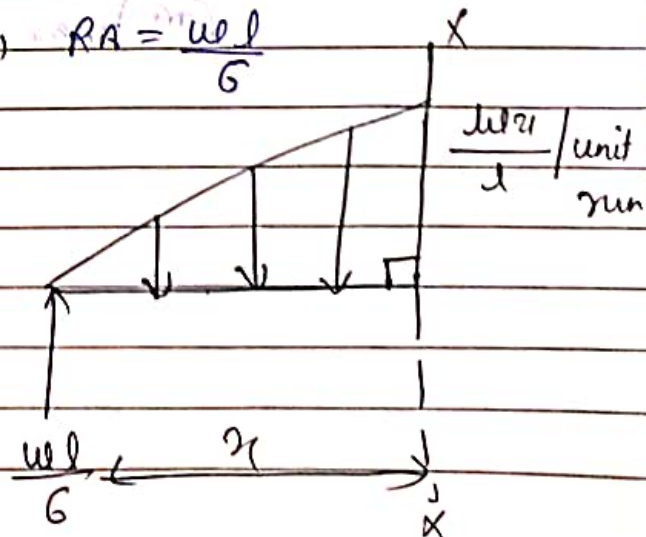 RA = wl/6
X
wx/l / unit
run
wl/6
x
X